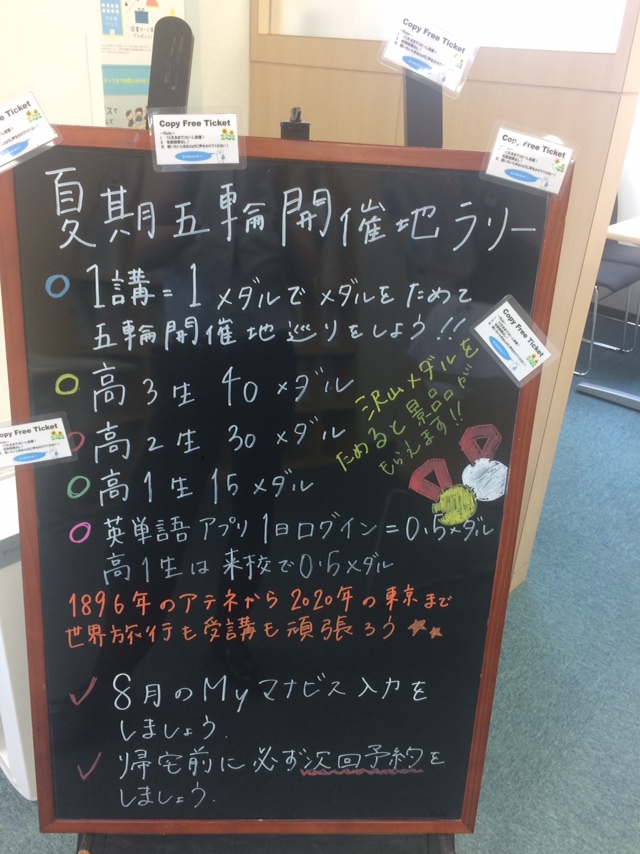 Copy Free Ticket
Copy Free Ticket
Copy Free Ticket
Copy Free Ticket
夏期五輪開催地ラリー
1講=1メダルでメダルをためて
五輪開催地巡りをしよう!!
Copy Free Ticket
高3生 40メダル
沢山メダルを
ためると景品が
もらえます!!
Copy Free Ticket
高2生 30メダル
高1生 15メダル
英単語アプリ1日ログイン=0.5メダル
高1生は来校で0.5メダル
1896年のアテネから2020年の東京まで
世界旅行も受講も頑張ろう
8月のMyマナビス入力を
しましょう.
帰宅前に必ず次回予約を
しましょう.